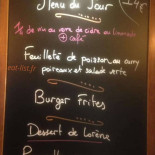 Menu du Jour
¼ de vin ou verre de cidre ou limonade
+ Café
Feuilleté de poisson au curry
poireaux et salade verte
Burger Frites
Dessert de Lorène